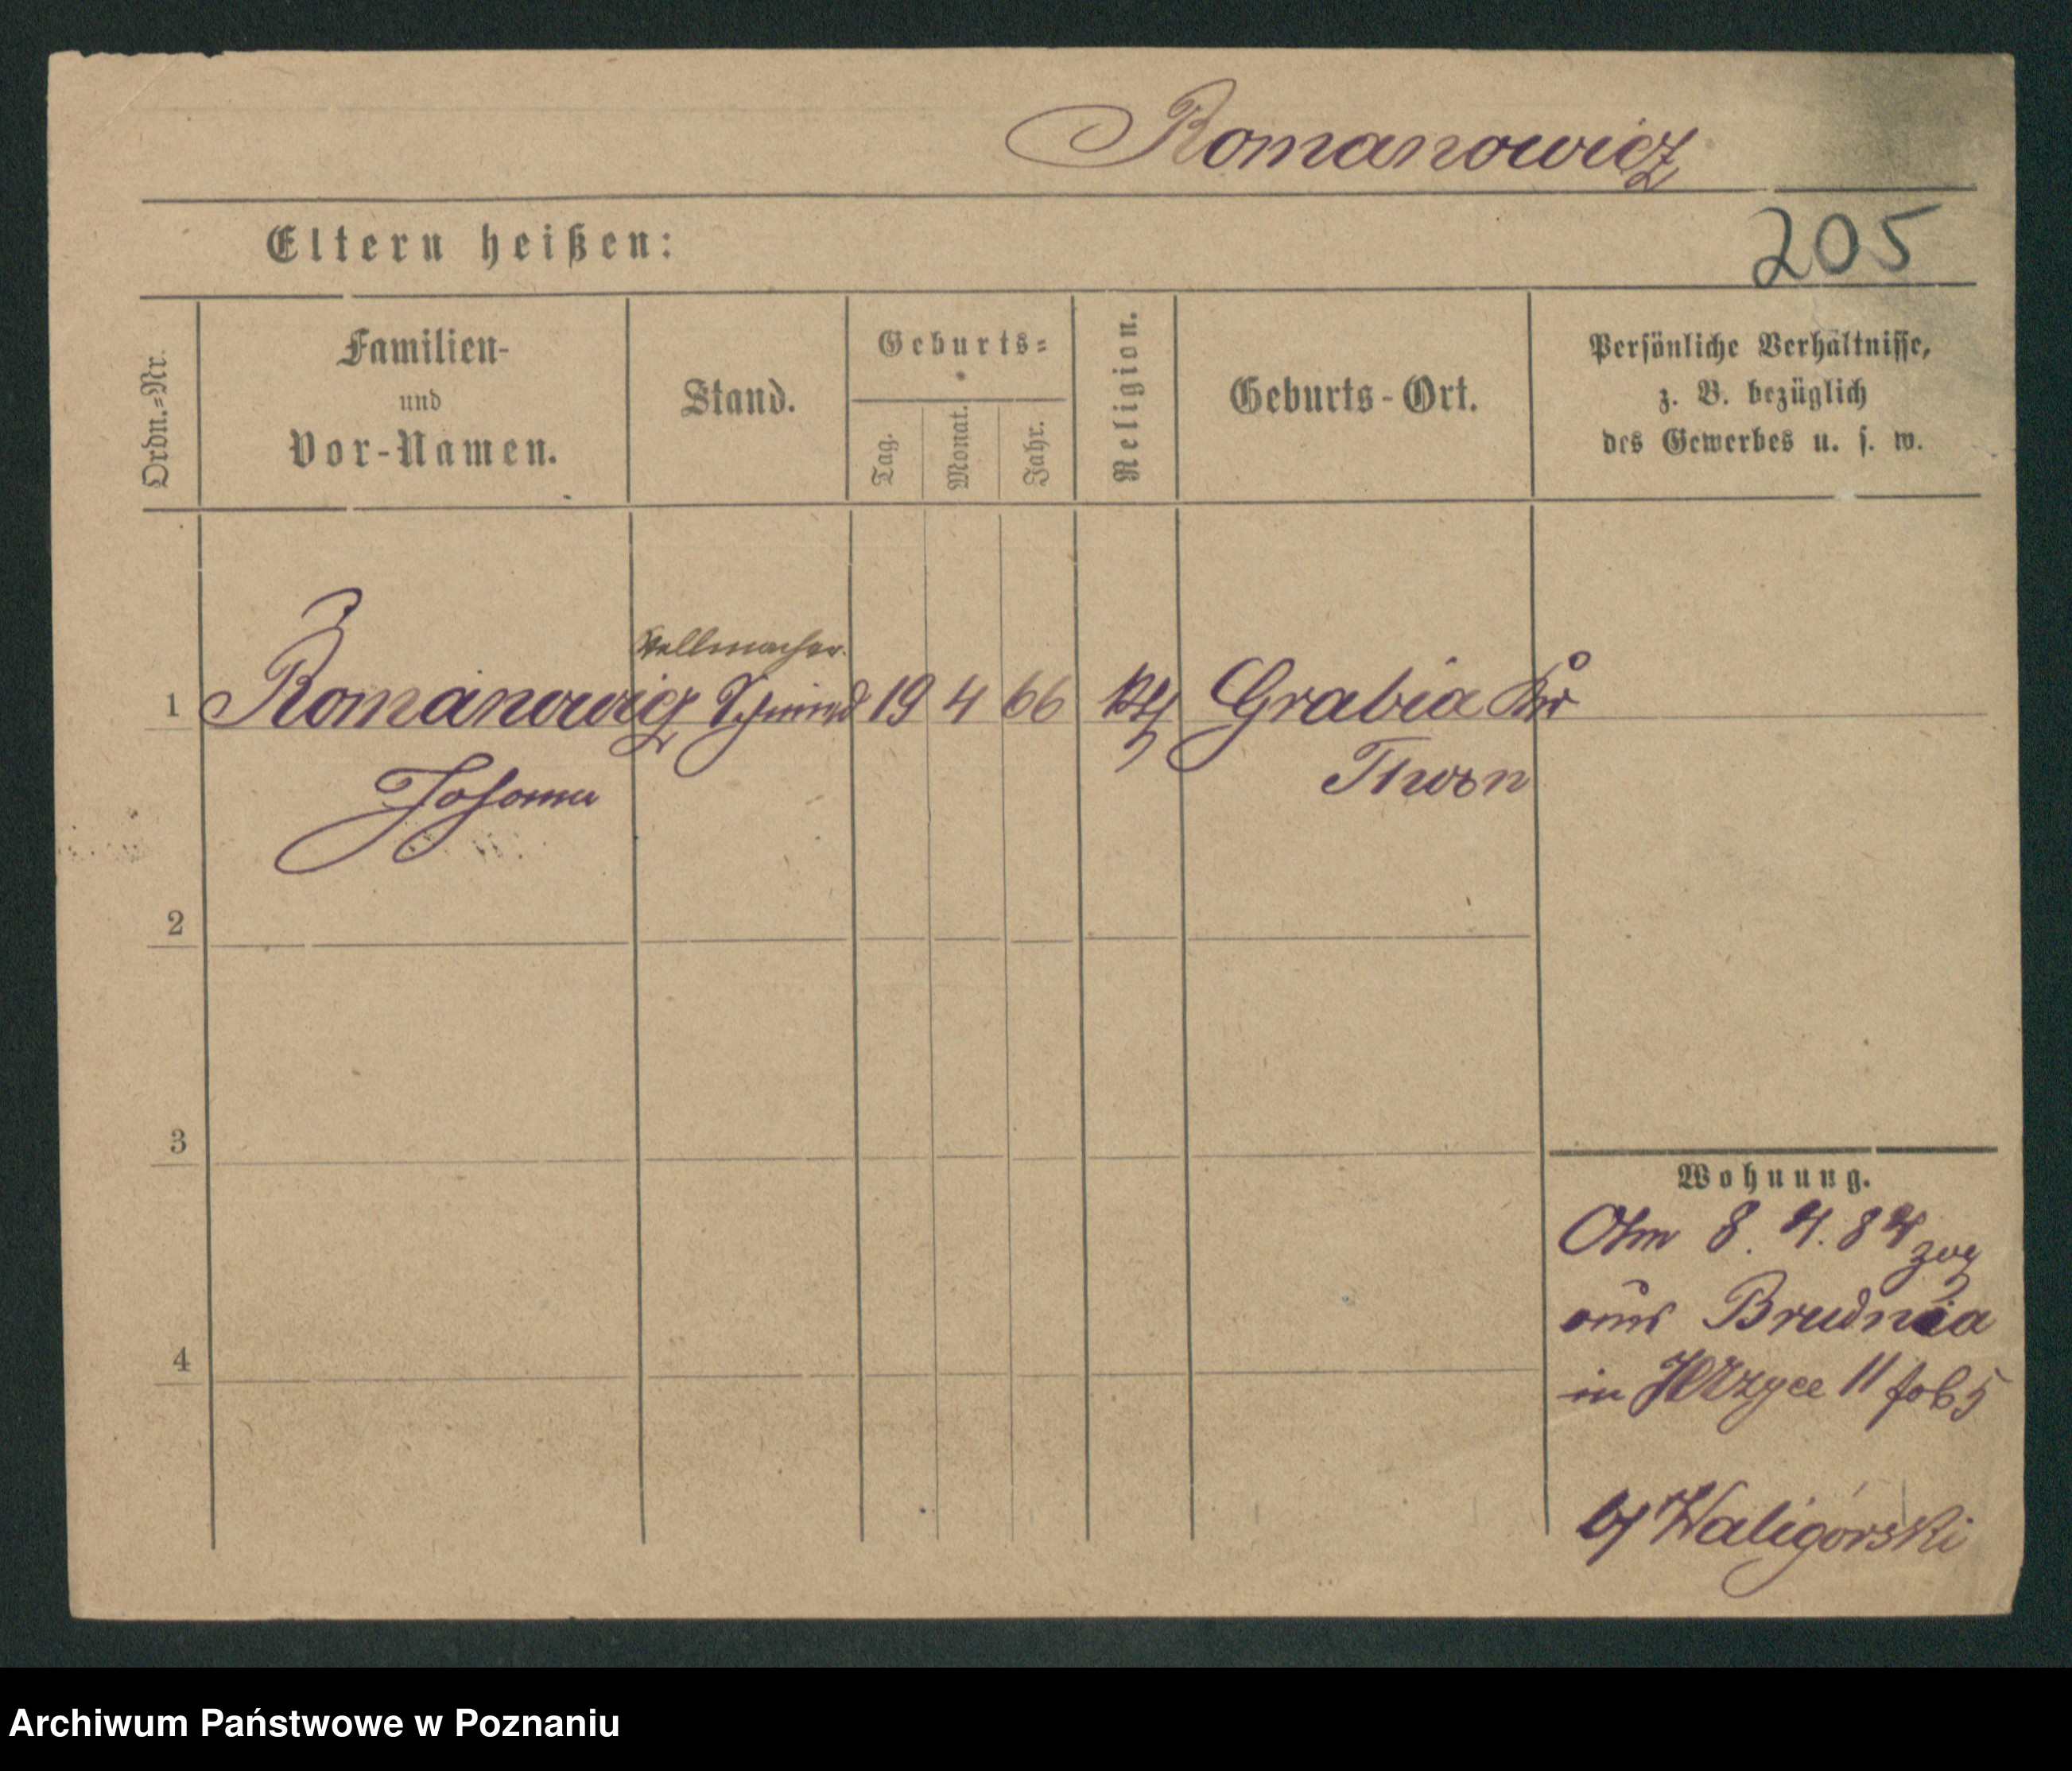 Romanowicz
205
Eltern heißen:
Ordn.=Nr.
Familien-
und
Vor-Namen.
Stand.
Geburts=
Tag.
Monat.
Jahr.
Religion.
Geburts-Ort.
Persönliche Verhältnisse,
z. B. bezüglich
des Gewerbes u. s. w.
Stellmacher.
1 Romanowicz Schmied 19 4 66 Kth Grabia Kr
Johann Thorn
2
3
4
Wohnung.
Am 8. 4. 84 zog
aus Brudnia
in
b/ Waligórski
Archiwum Państwowe w Poznaniu